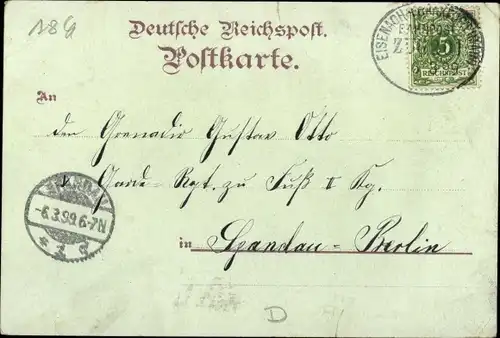 Deutsche Reichspost.
Postkarte.
5
REICHSPOST
BAHNPOST
An
den Grenadir Gustav Otto
Garde-Rgt. zu Fuß II Kg.
in Spandau-Berlin
SPANDAU
-6.3.99.6-7N
D